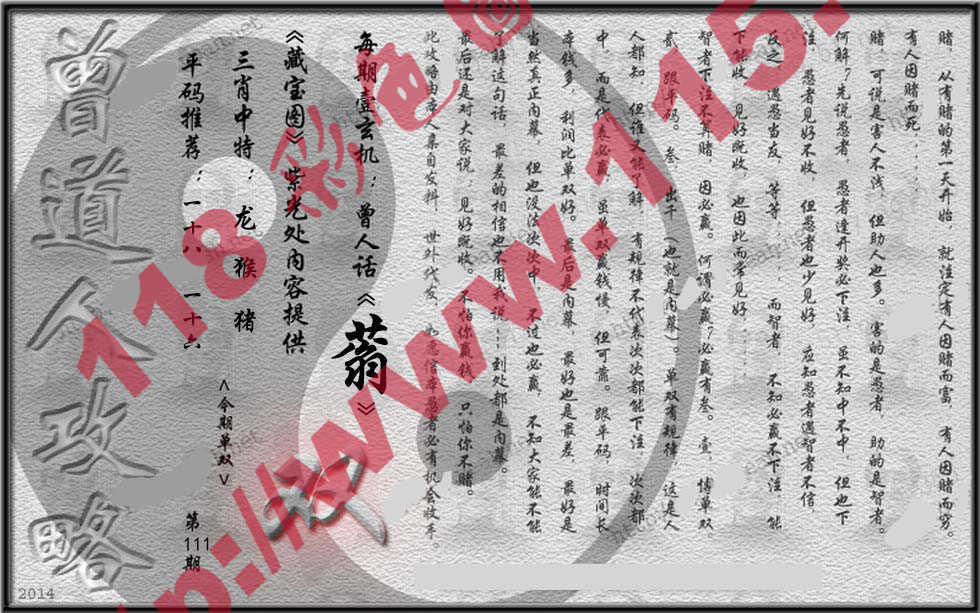 赌，从有赌的第一天开始，就注定有人因赌而富，有人因赌而穷。
有人因赌而死．．．．．．
赌，可说是害人不浅，但助人也多。害的是愚者，助的是智者。
何解？先说愚者，愚者逢开奖必下注，虽不知中不中，但也下
注，愚者见好不收，但愚者也少见好，应知愚者遇智者不信，
反之，遇愚当友，等等．．．．．．而智者，不知必赢不下注，能
下能收，见好既收，也因此而常见好．．．．．．
智者下注不算赌，因必赢。何谓必赢？必赢有叁。壹，博单双
贰，跟平码。叁，出千（也就是内幕）。单双有规律，这是人
人都知，但谁又能了解，有规律不代表次次都能下注，次次都
中，而是代表必赢，虽单双赢钱慢，但可靠。跟平码，时间长
本钱多，利润比单双好。最后是内幕，最好也是最差，最好是
当然真正内幕，但也没法次次中，不过也必赢，不知大家能不能
了解这句话，最差的相信也不用我说┅到处都是内幕。
最后还是对大家说；见好既收。不怕你赢钱，只怕你不赌。
此攻略由本人集自发料，世外代发，如愿信本愚者必有机会收手。
每期壹玄机：曾人话《蓊》
《藏宝图》柴老处内容提供
三肖中特：龙 猴 猪
平码推荐：一十八 一十六
<今期单双>
双
第111期
曾道人攻略
118彩色
://www.115.
2014